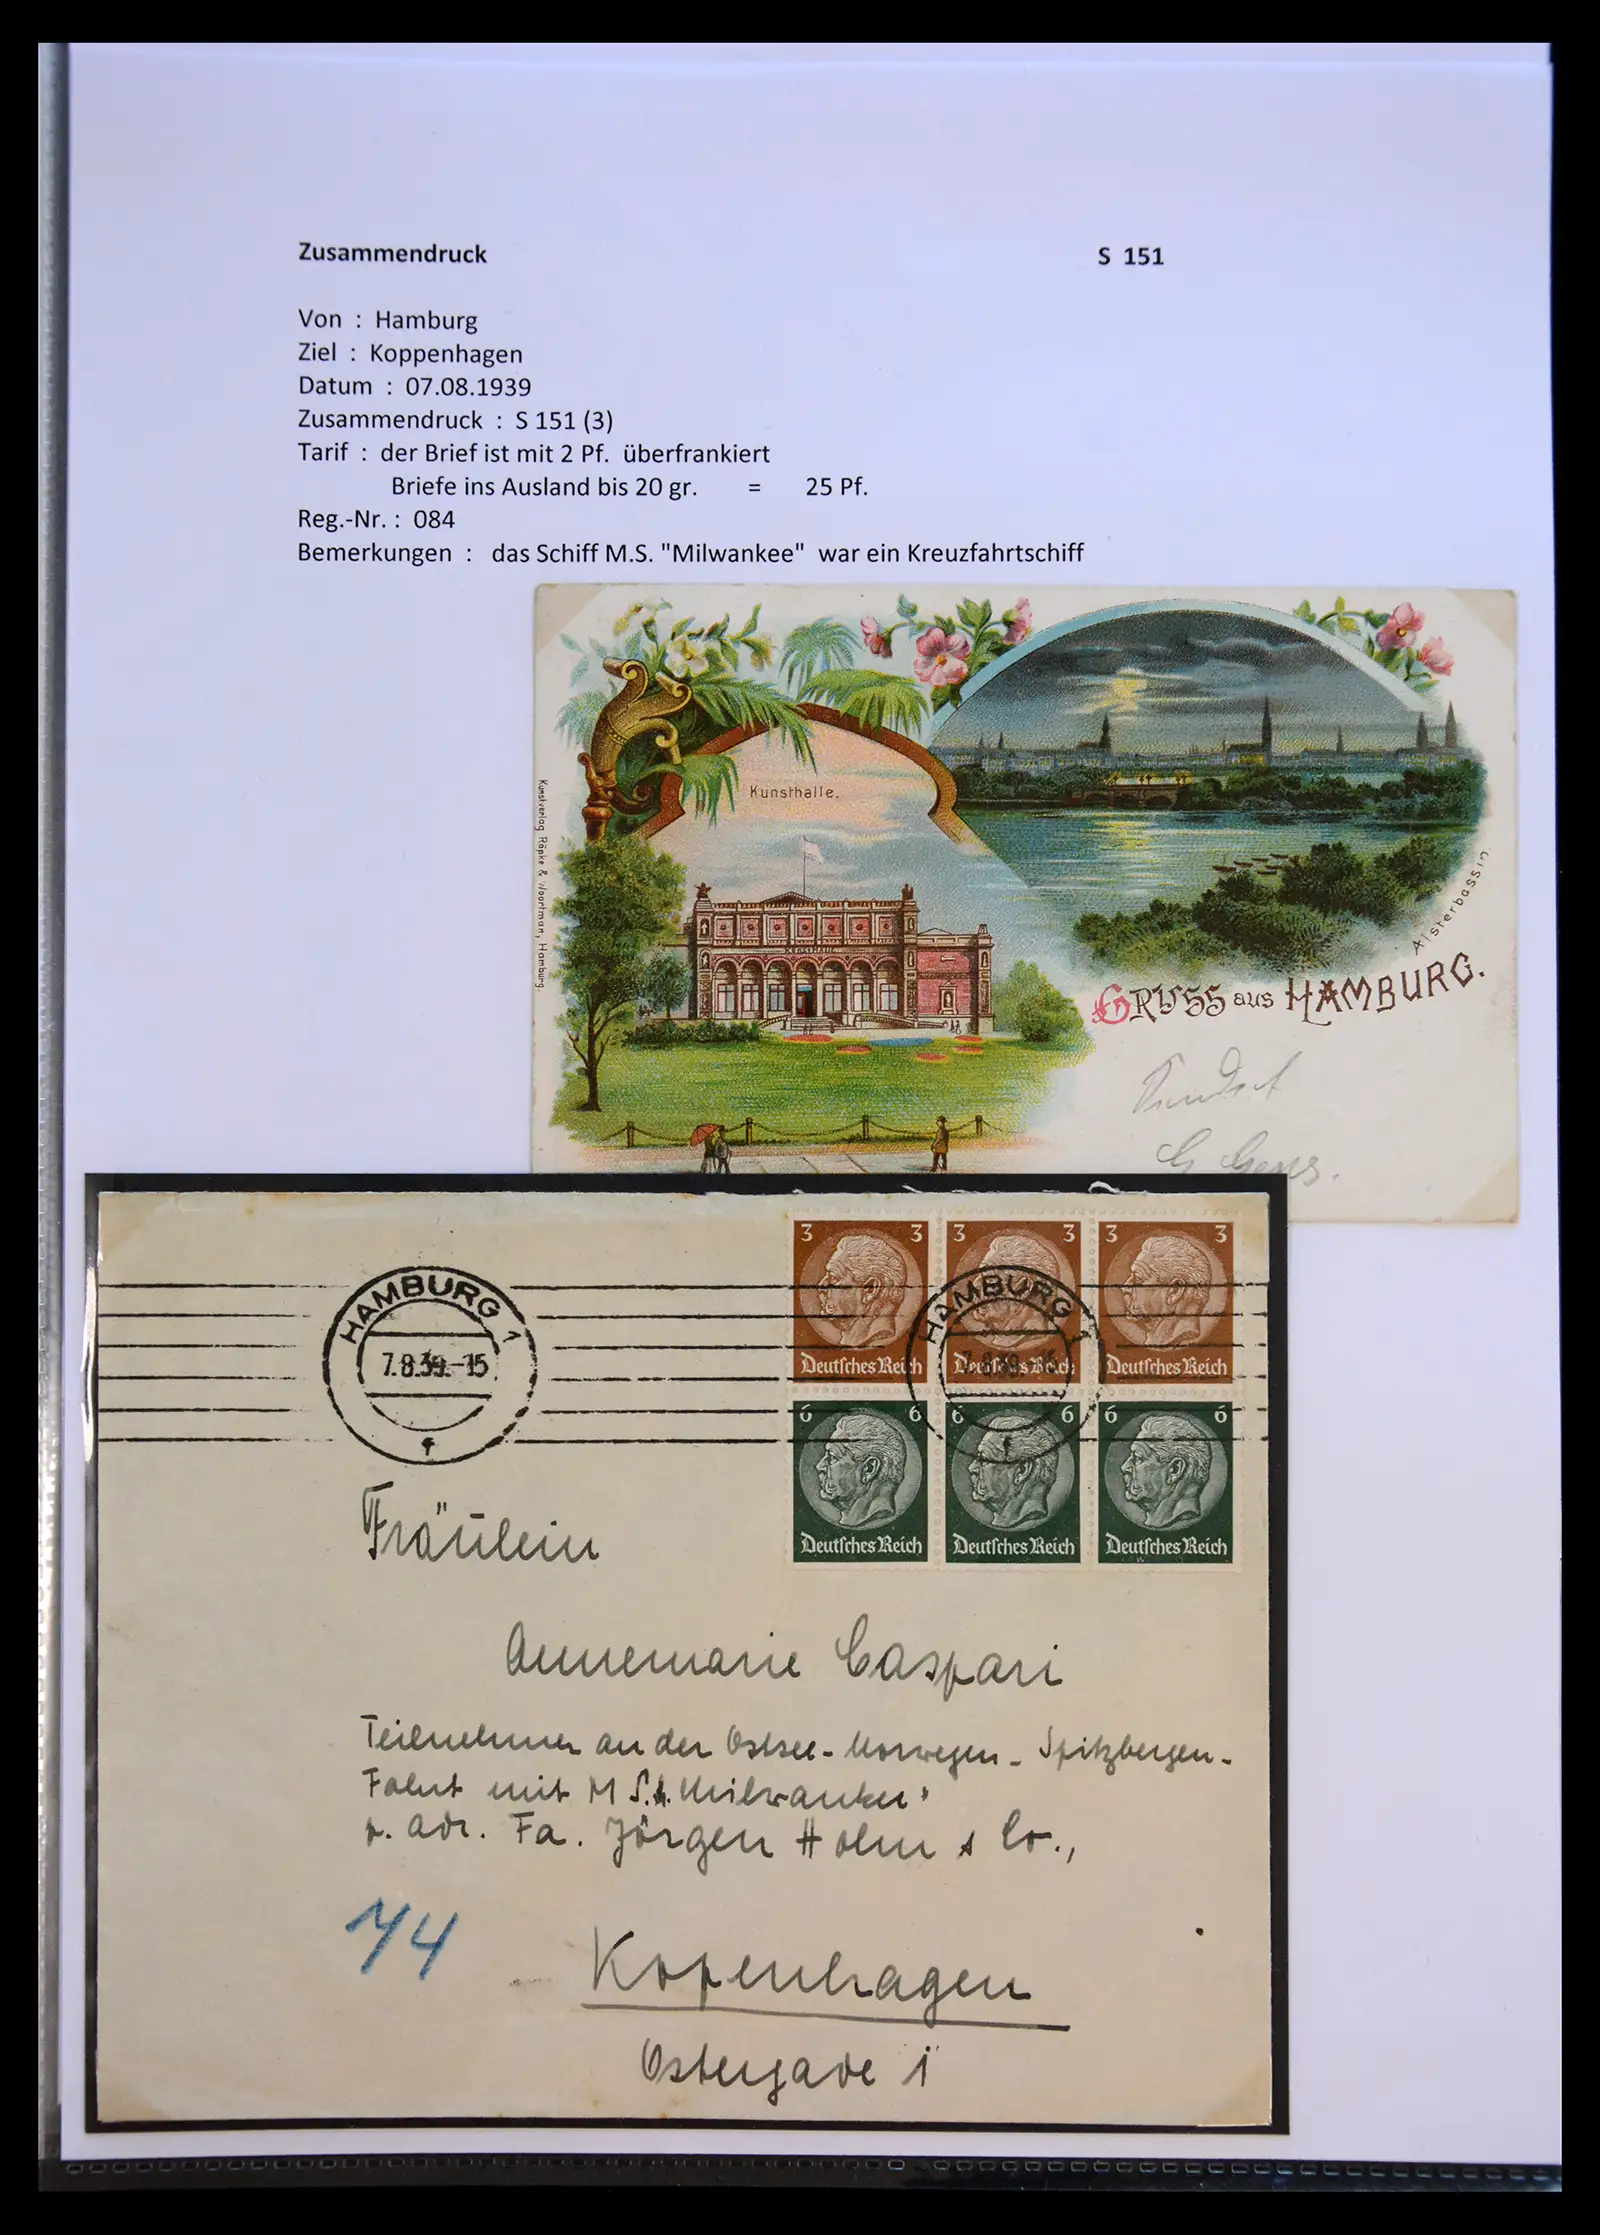 Zusammendruck S 151
Von : Hamburg
Ziel : Koppenhagen
Datum : 07.08.1939
Zusammendruck : S 151 (3)
Tarif : der Brief ist mit 2 Pf. überfrankiert
Briefe ins Ausland bis 20 gr. = 25 Pf.
Reg.-Nr. : 084
Bemerkungen : das Schiff M.S. "Milwankee" war ein Kreuzfahrtschiff
Kunsthalle.
Kunstverlag Röpke & Woortman, Hamburg.
KUNSTHALLE
Alsterbassin.
GRUSS aus HAMBURG.
3 3 3 3 3 3
HAMBURG 1 HAMBURG 1
7.8.39.-15 7.8.39.-15
Deutsches Reich Deutsches Reich Deutsches Reich
6 6 6 6 6 6
f f
Deutsches Reich Deutsches Reich Deutsches Reich
Fräulein
Annemarie Caspari
Teilnehmer an der Ostsee-Norwegen-Spitzbergen-
Fahrt mit M.S. „Milwaukee"
p. adr. Fa. Jörgen Holm & Co.,
14
Kopenhagen
Ostergade 1